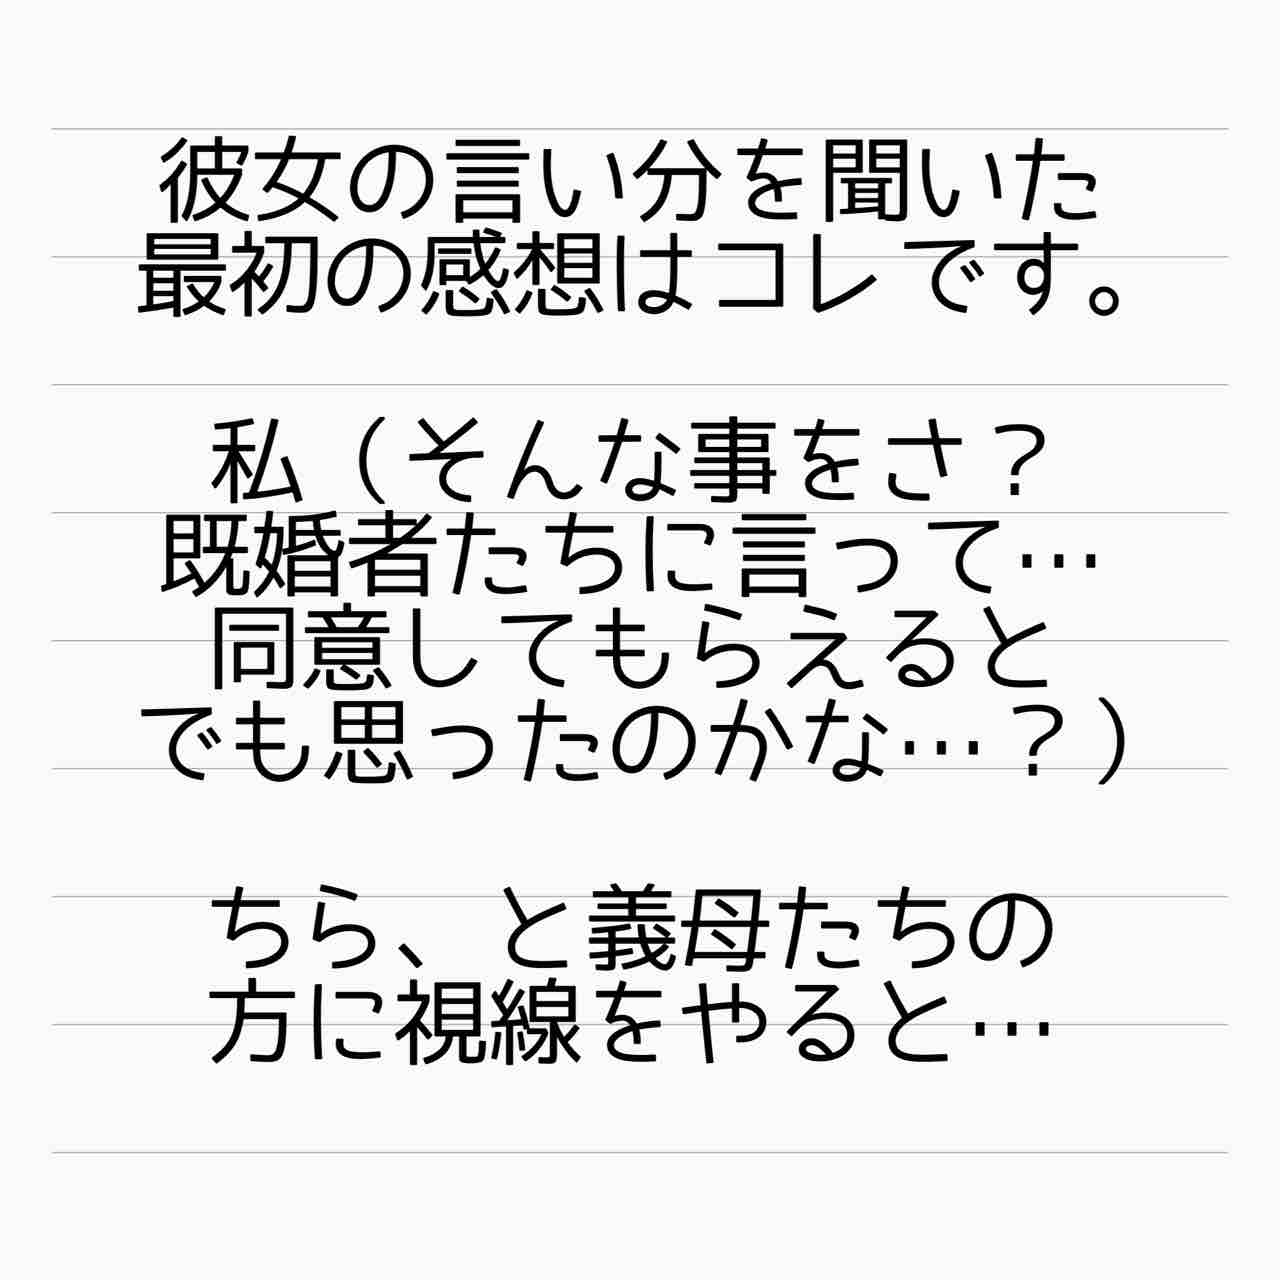 彼女の言い分を聞いた
最初の感想はコレです。
私（そんな事をさ？
既婚者たちに言って…
同意してもらえると
でも思ったのかな…？）
ちら、と義母たちの
方に視線をやると…